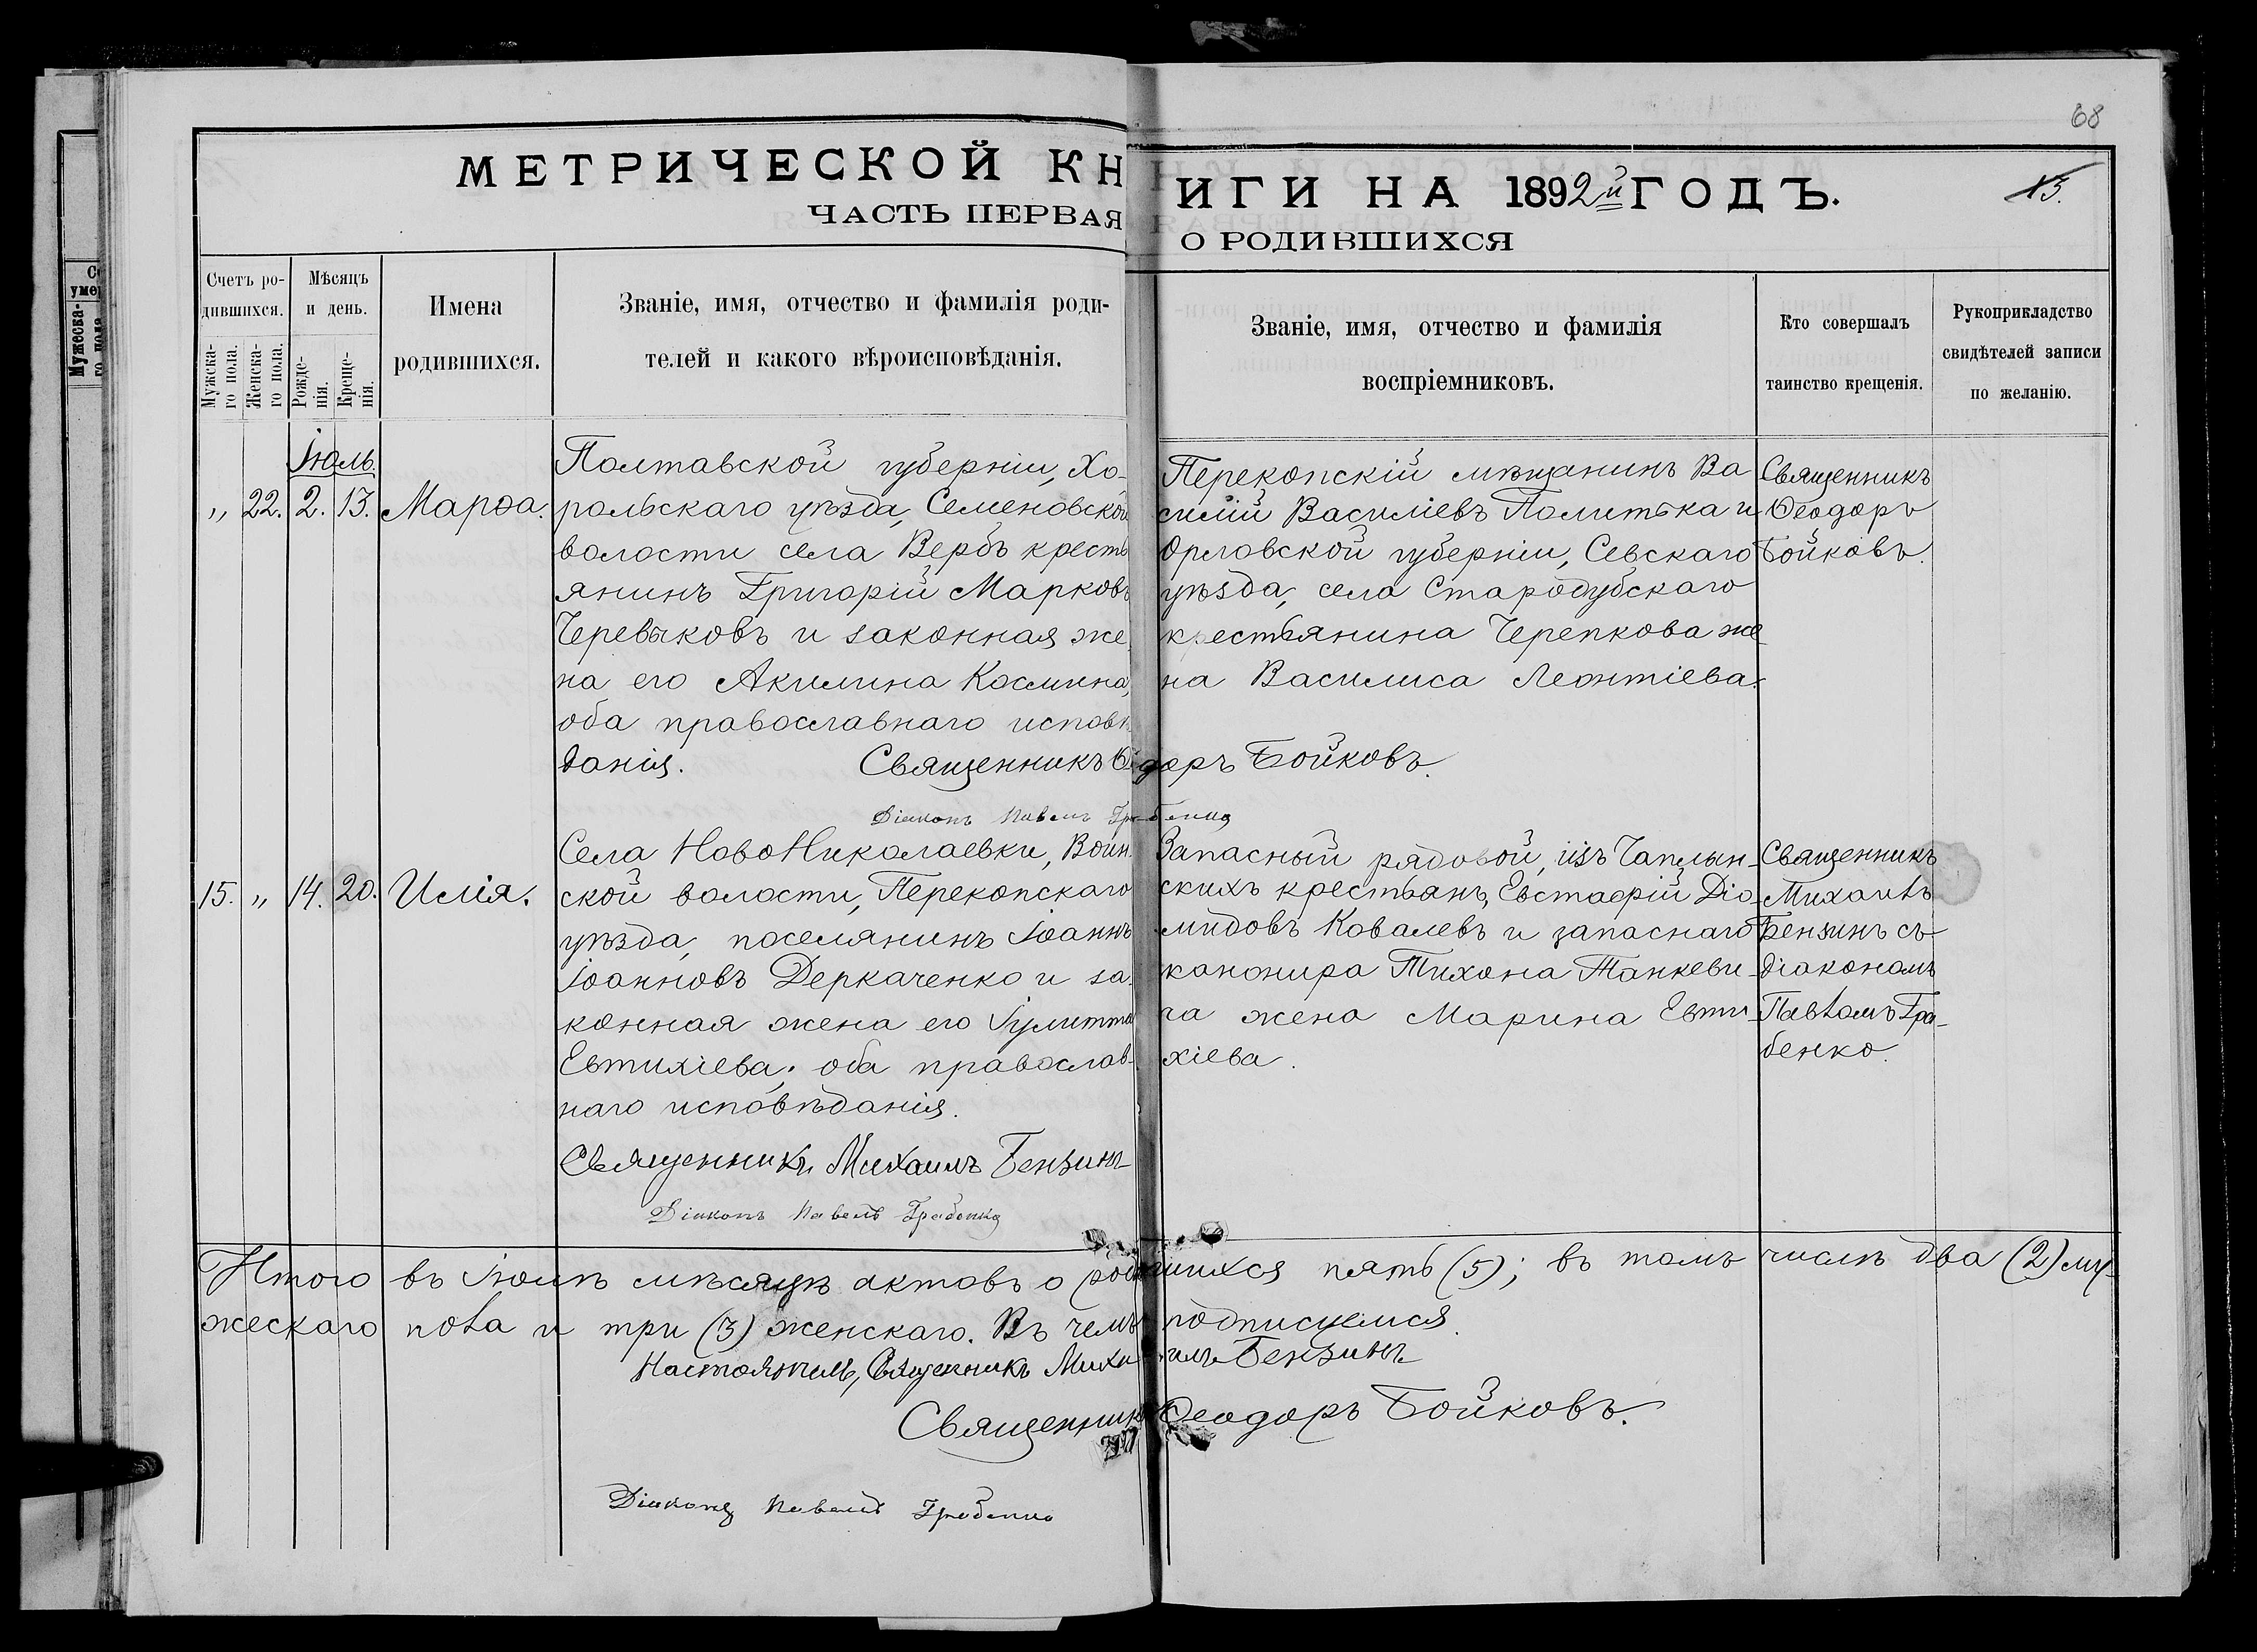 68
МЕТРИЧЕСКОЙ КНИГИ НА 1892й ГОДЪ.
15.
ЧАСТЬ ПЕРВАЯ О РОДИВШИХСЯ
Счетъ ро-
дившихся.
Мужска-
го пола.
Женска-
го пола.
Мѣсяцъ
и день.
Рожде-
нія.
Креще-
нія.
Имена
родившихся.
Званіе, имя, отчество и фамилія роди-
телей и какого вѣроисповѣданія.
Званіе, имя, отчество и фамилія
воспріемниковъ.
Кто совершалъ
таинство крещенія.
Рукоприкладство
свидѣтелей записи
по желанію.
Мужеска-
го пола
Іюль.
„ 22. 2. 13. Марѳа.
Полтавской губерніи, Хо-
рольскаго уѣзда, Семеновской
волости села Вербъ кресть
янинъ Григорій Марковъ
Черевыковъ и законная же
на его Акилина Космина,
оба православнаго исповѣ
данія.
Перекопскій мѣщанинъ Ва
силій Василіевъ Политька и
Орловской губерніи, Севскаго
уѣзда, села Стародубскаго
крестьянина Черепкова же
на Василиса Леонтіева.
Священникъ
Ѳеодоръ
Бойковъ.
Священникъ Ѳеодоръ Бойковъ.
Діаконъ Павелъ Грабенко
15. „ 14. 20. Илія.
Села НовоНиколаевки, Воин
ской волости, Перекопскаго
уѣзда, поселянинъ Іоаннъ
Іоанновъ Деркаченко и за-
конная жена его Іулитта
Евтихіева; оба православ-
наго исповѣданія.
Запасный рядовой, изъ Чаплын-
скихъ крестьянъ, Евстафій Діо-
мидовъ Ковалевъ и запаснаго
канонира Тихона Танкеви-
ча жена Марина Евти-
хіева.
Священникъ
Михаилъ
Бензинъ съ
діакономъ
Павломъ Гра-
бенко.
Священникъ Михаилъ Бензинъ
Діаконъ Павелъ Грабенко
Итого въ Іюлѣ мѣсяцѣ актовъ о родившихся пять (5); въ томъ числѣ два (2) му-
жескаго пола и три (3) женскаго. Въ чемъ подписуемся.
Настоятель, Священникъ Михаилъ Бензинъ
Священникъ Ѳеодоръ Бойковъ.
Діаконъ Павелъ Грабенко